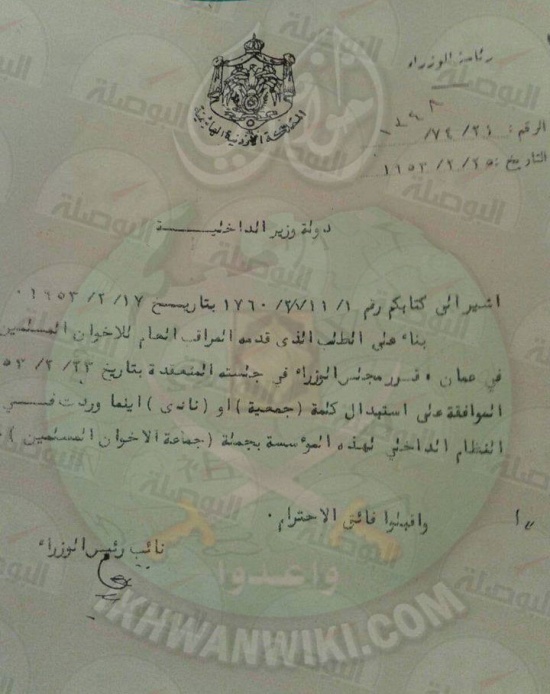 المملكة الأردنية الهاشمية
رئاسة الوزراء
الرقم:
التاريخ: ١٩٥٣/٢/٢٥
دولة وزير الداخليـــــة
اشير الى كتابكم رقم بتاريـــخ ١٩٥٣/٢/١٧ ٠
بناء على الطلب الذى قدمه المراقب العام للاخوان المسلمين
في عمان ، قرر مجلس الوزراء في جلسته المنعقدة بتاريخ ٥٣/٢/٢٣
الموافقة على استبدال كلمة (جمعية) او (نادى) اينما وردت فـــي
النظام الداخلي لهذه المؤسسة بجملة (جماعة الاخوان المسلمين)
واقبلوا فائق الاحترام ٠
نائب رئيس الوزراء
البوصلة
واعدوا
IKHWANWIKI.COM